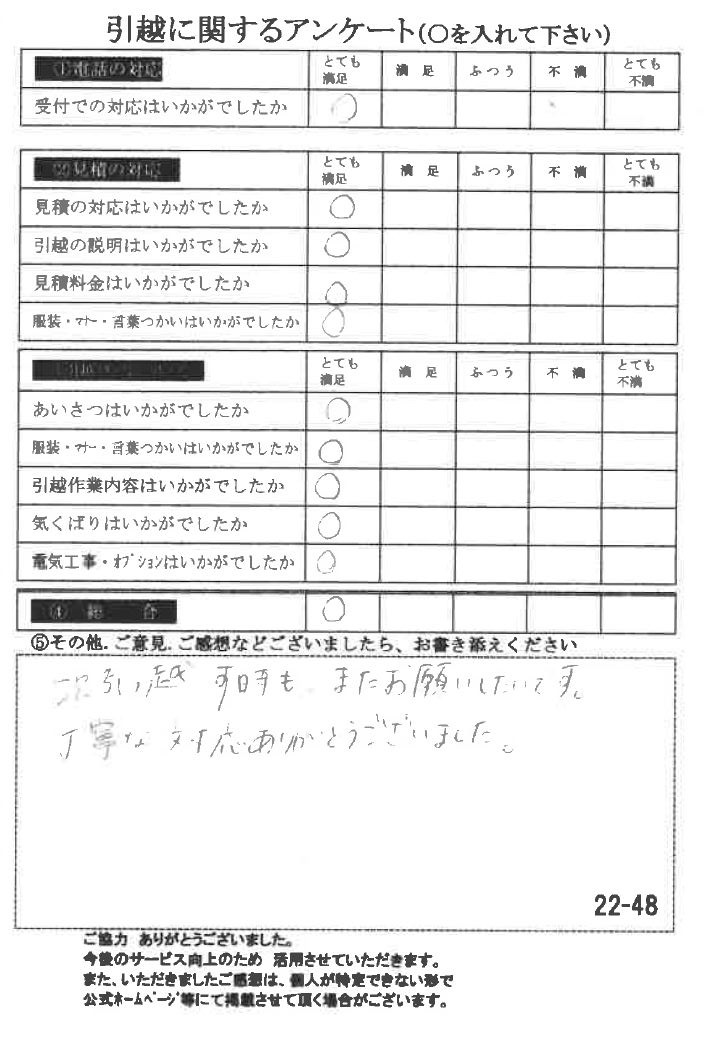 引越に関するアンケート(○を入れて下さい)
①電話の対応 とても満足 満足 ふつう 不満 とても不満
受付での対応はいかがでしたか ○
②見積の対応 とても満足 満足 ふつう 不満 とても不満
見積の対応はいかがでしたか ○
引越の説明はいかがでしたか ○
見積料金はいかがでしたか ○
服装・マナー・言葉つかいはいかがでしたか ○
とても満足 満足 ふつう 不満 とても不満
あいさつはいかがでしたか ○
服装・マナー・言葉つかいはいかがでしたか ○
引越作業内容はいかがでしたか ○
気くばりはいかがでしたか ○
電気工事・オプションはいかがでしたか ○
④総合 ○
⑤その他.ご意見.ご感想などございましたら、お書き添えください
次引っ越す時も、またお願いしたいです。
丁寧な対応ありがとうございました。
22-48
ご協力 ありがとうございました。
今後のサービス向上のため 活用させていただきます。
また、いただきましたご感想は、個人が特定できない形で
公式ホームページ等にて掲載させて頂く場合がございます。